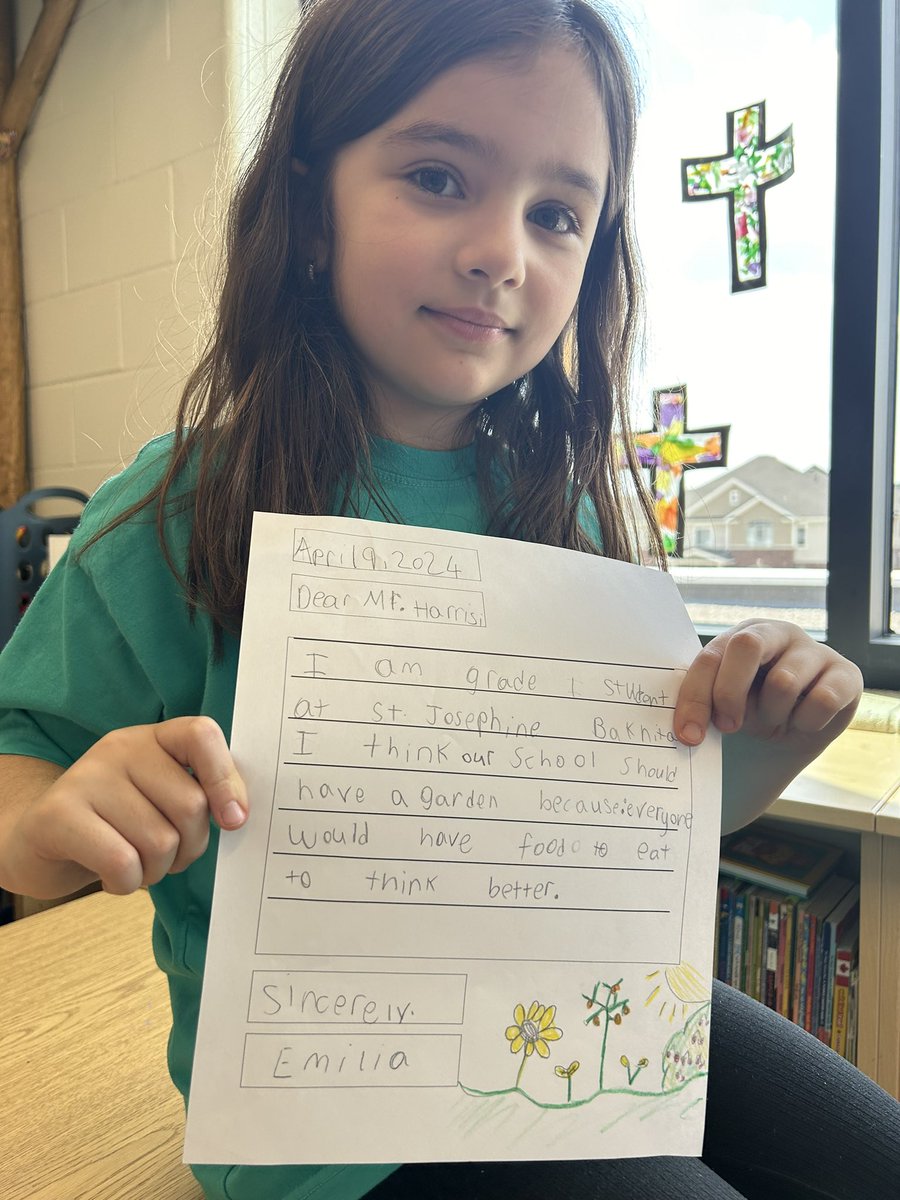 April 9, 2024
Dear Mr. Harris,
I am grade 1 student
at St. Josephine Bakhita
I think our School Should
have a garden because everyone
would have food to eat
to think better.
Sincerely.
Emilia